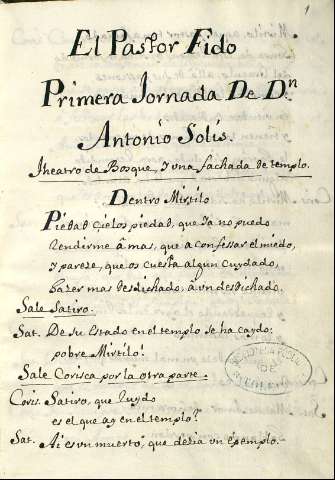 1
El Pastor Fido
Primera Jornada De Dn.
Antonio Solis.
Theatro de Bosque, y una fachada de templo.
Dentro Mirtilo
Piedad cielos piedad, que ya no puedo
Rendirme â mas, que a confessar el miedo,
y pareze, que os cuesta algun cuydado,
hazer mas desdichado, â un desdichado.
Sale Satiro.
Sat. De su estado en el templo se ha caydo:
pobre Mirtilo!
Sale Corisca por la otra parte.
Coris. Satiro, que ruydo
es el que ay en el templo?
Sat. Ai es un muerto, que dezia un exemplo.
BIBLIOTECA
DE